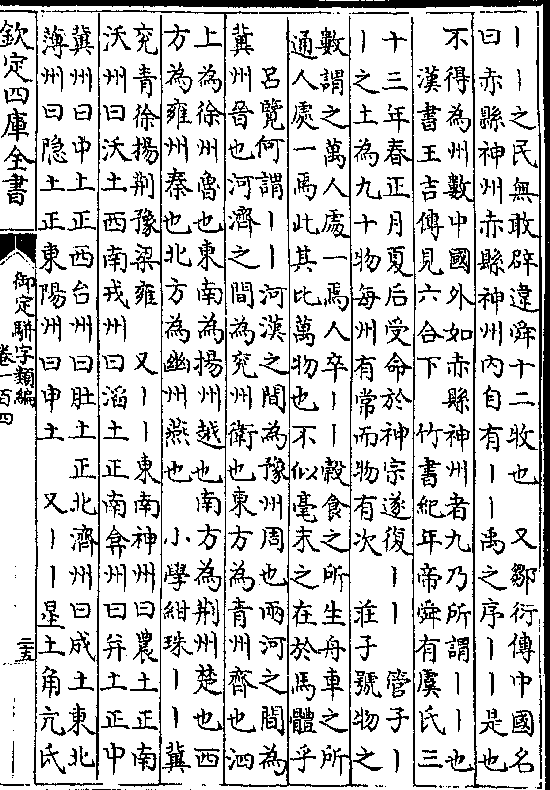 丨丨之民無敢辟違舜十二牧也 又鄒衍傳中國名
曰赤縣神州赤縣神州內自有丨丨禹之序丨丨是也
不得為州數中國外如赤縣神州者九乃所謂丨丨也
漢書王吉傳見六合下 竹書紀年帝舜有虞氏三
十三年春正月夏后受命於神宗遂復丨丨 管子丨
丨之土為九十物每州有常而物有次 莊子號物之
數謂之萬人處一焉人卒丨丨穀食之所生舟車之所
通人處一焉此其比萬物也不似毫末之在於馬體乎
呂覽何謂丨丨河漢之間為豫州周也兩河之間為
冀州晉也河濟之間為兗州衛也東方為青州齊也泗
上為徐州魯也東南為揚州越也南方為荆州楚也西
方為雍州秦也北方為幽州燕也 小學紺珠丨丨冀
兗青徐揚荆豫梁雍 又丨丨東南神州曰農土正南
沃州曰沃土西南戎州曰滔土正南弇州曰并土正中
冀州曰中上正西台州曰肚土正北濟州曰成土東北
薄州曰隱土正東陽州曰申土 又丨丨星土角亢氐
欽定四庫全書
御定駢字類編
卷一百四
二十五